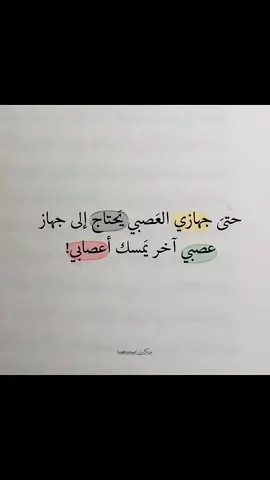 حتىَ جهازي العَصبي يَحتاج إلى جهاز
عصبي آخر يَمسك أعصابي!